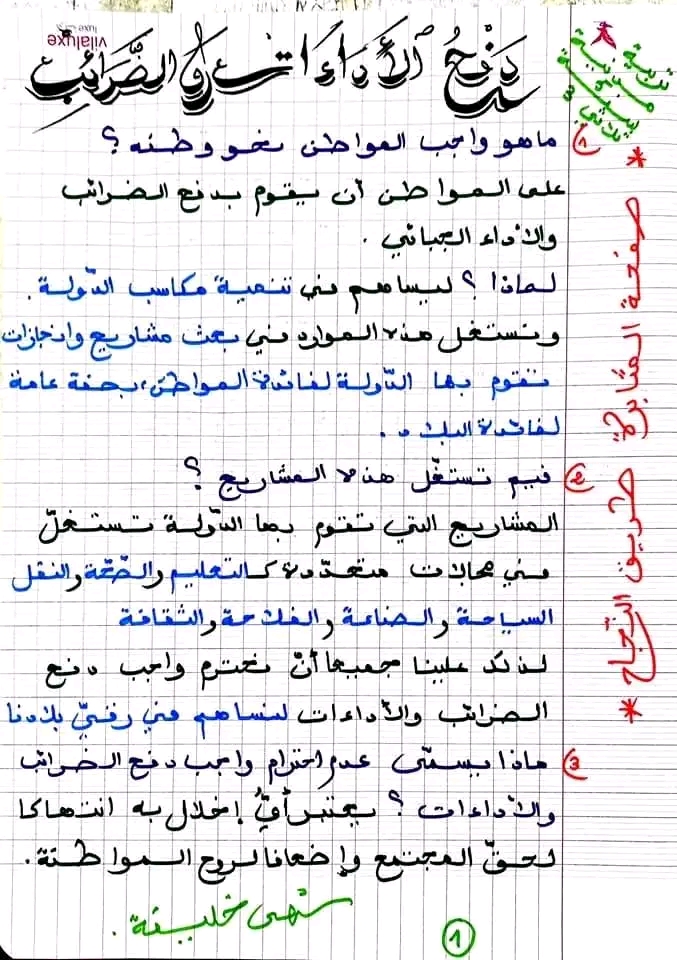 vilaluxe
luxe فيلا
تربية
مدنية
سنة
ثلاثي 3
دفع الأداءات والضّرائب
1 ما هو واجب المواطن نحو وطنه؟
على المواطن أن يقوم بدفع الضرائب
والأداء الجبائي.
لماذا؟ ليساهم في تنمية مكاسب الدّولة.
وتستغل هذه الموارد في بعث مشاريع وانجازات
تقوم بها الدّولة لفائدة المواطن، بصفة عامة
لفائدة البلاد.
2 فيم تستغّل هذه المشاريع؟
المشاريع التي تقوم بها الدّولة تستغلّ
في مجالات متعدّدة كالتعليم والصّحّة والنقل
السياحة والصناعة والفلاحة والثقافة
لذلك علينا جميعا أنْ نحترم واجب دفع
الضرائب والأداءات لنساهم في رقيّ بلادنا
3 ماذا يسمّى عدم احترام واجب دفع الضرائب
والأداءات؟ يعتبر أيُّ إخلال به انتهاكا
لحقّ المجتمع وإضعافا لروح المواطنة.
خليفة
1
* صفحة المثابرة طريق النّجاح *